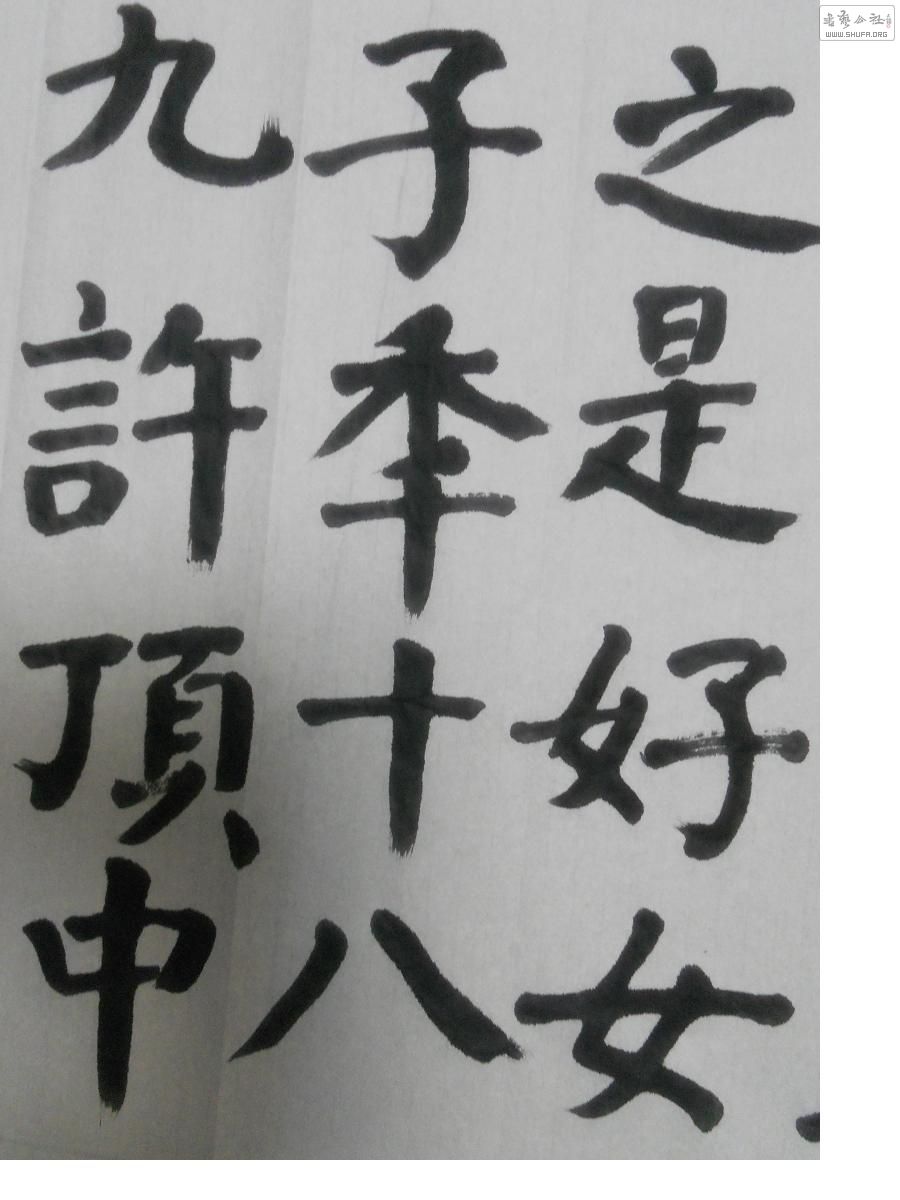 之是好女
子年十八
九許頂中
書藝公社
WWW.SHUFA.ORG